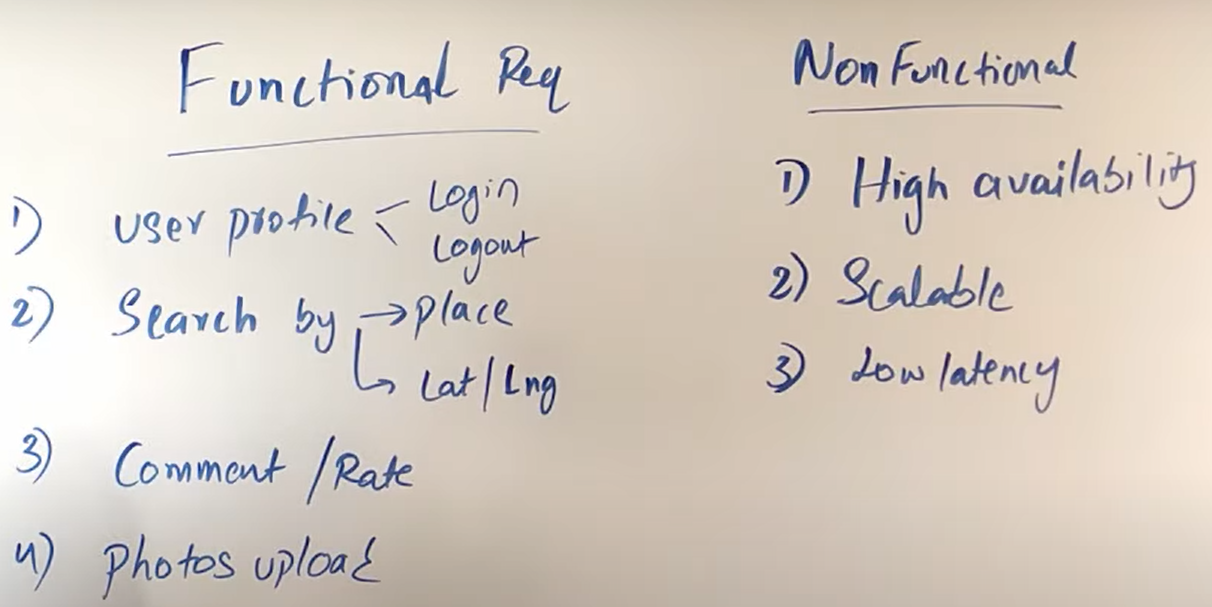 Functional Req
1) User profile - Login
Logout
2) Search by → place
Lat/Lng
3) Comment /Rate
4) Photos upload
Non Functional
1) High availability
2) Scalable
3) Low latency